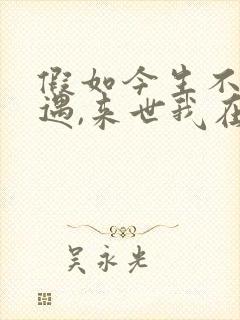 假如今生不
遇,来世我在
吴永光